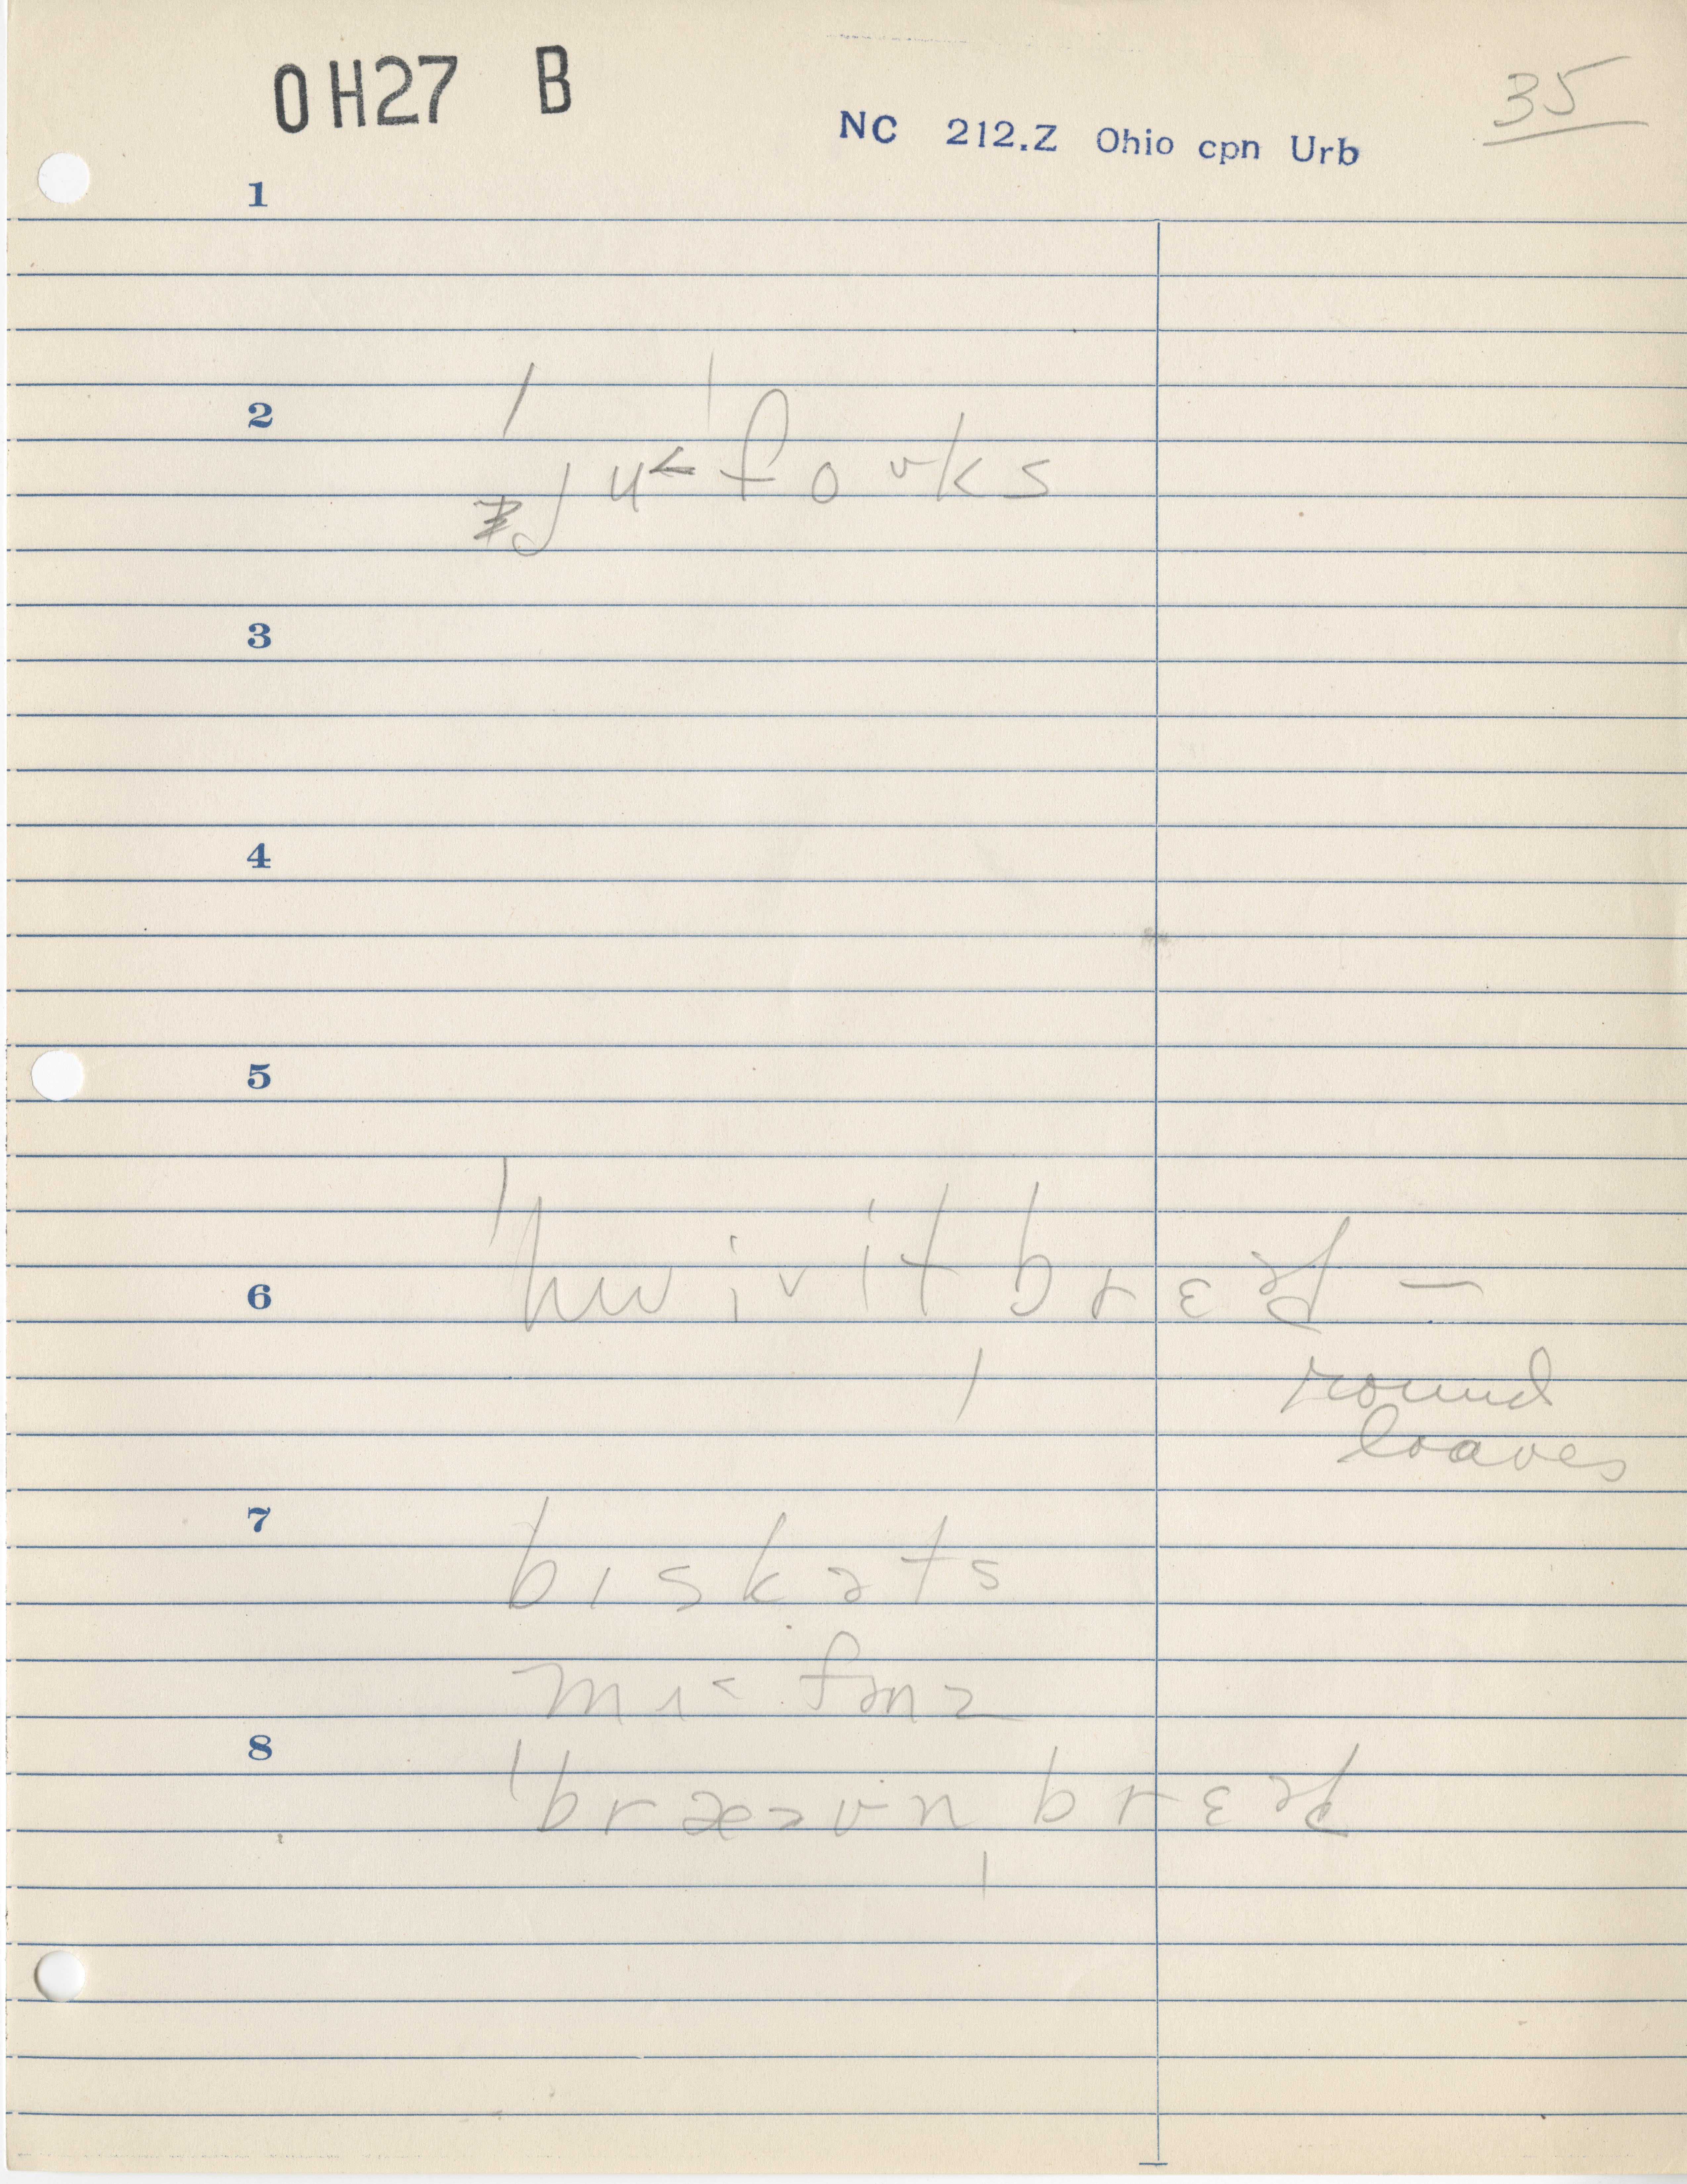 OH27 B
NC 212.Z Ohio cpn Urb
35
1
2
ˈju˂ˈfoɚks
3
4
5
6
ˈhwivitbrɛəd̥ —
round
loaves
7
bɪskəts
mɪ˂fənz
8
ˈbræ˃ʊn brɛəd̥